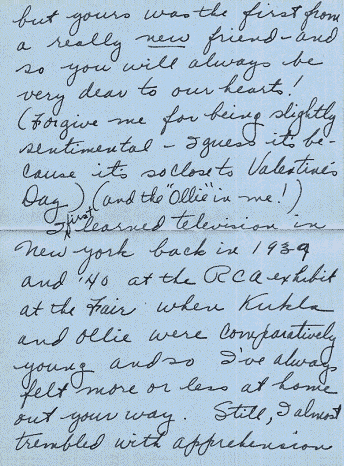 but yours was the first from
a really new friend - and
so you will always be
very dear to our hearts!
(Forgive me for being slightly
sentimental - I guess it's be-
cause it's so close to Valentine's
Day) (and the "Ollie" in me!)
I first learned television in
New York back in 1939
and '40 at the RCA exhibit
at the Fair when Kukla
and Ollie were comparatively
young and so I've always
felt more or less at home
out your way. Still, I almost
trembled with apprehension